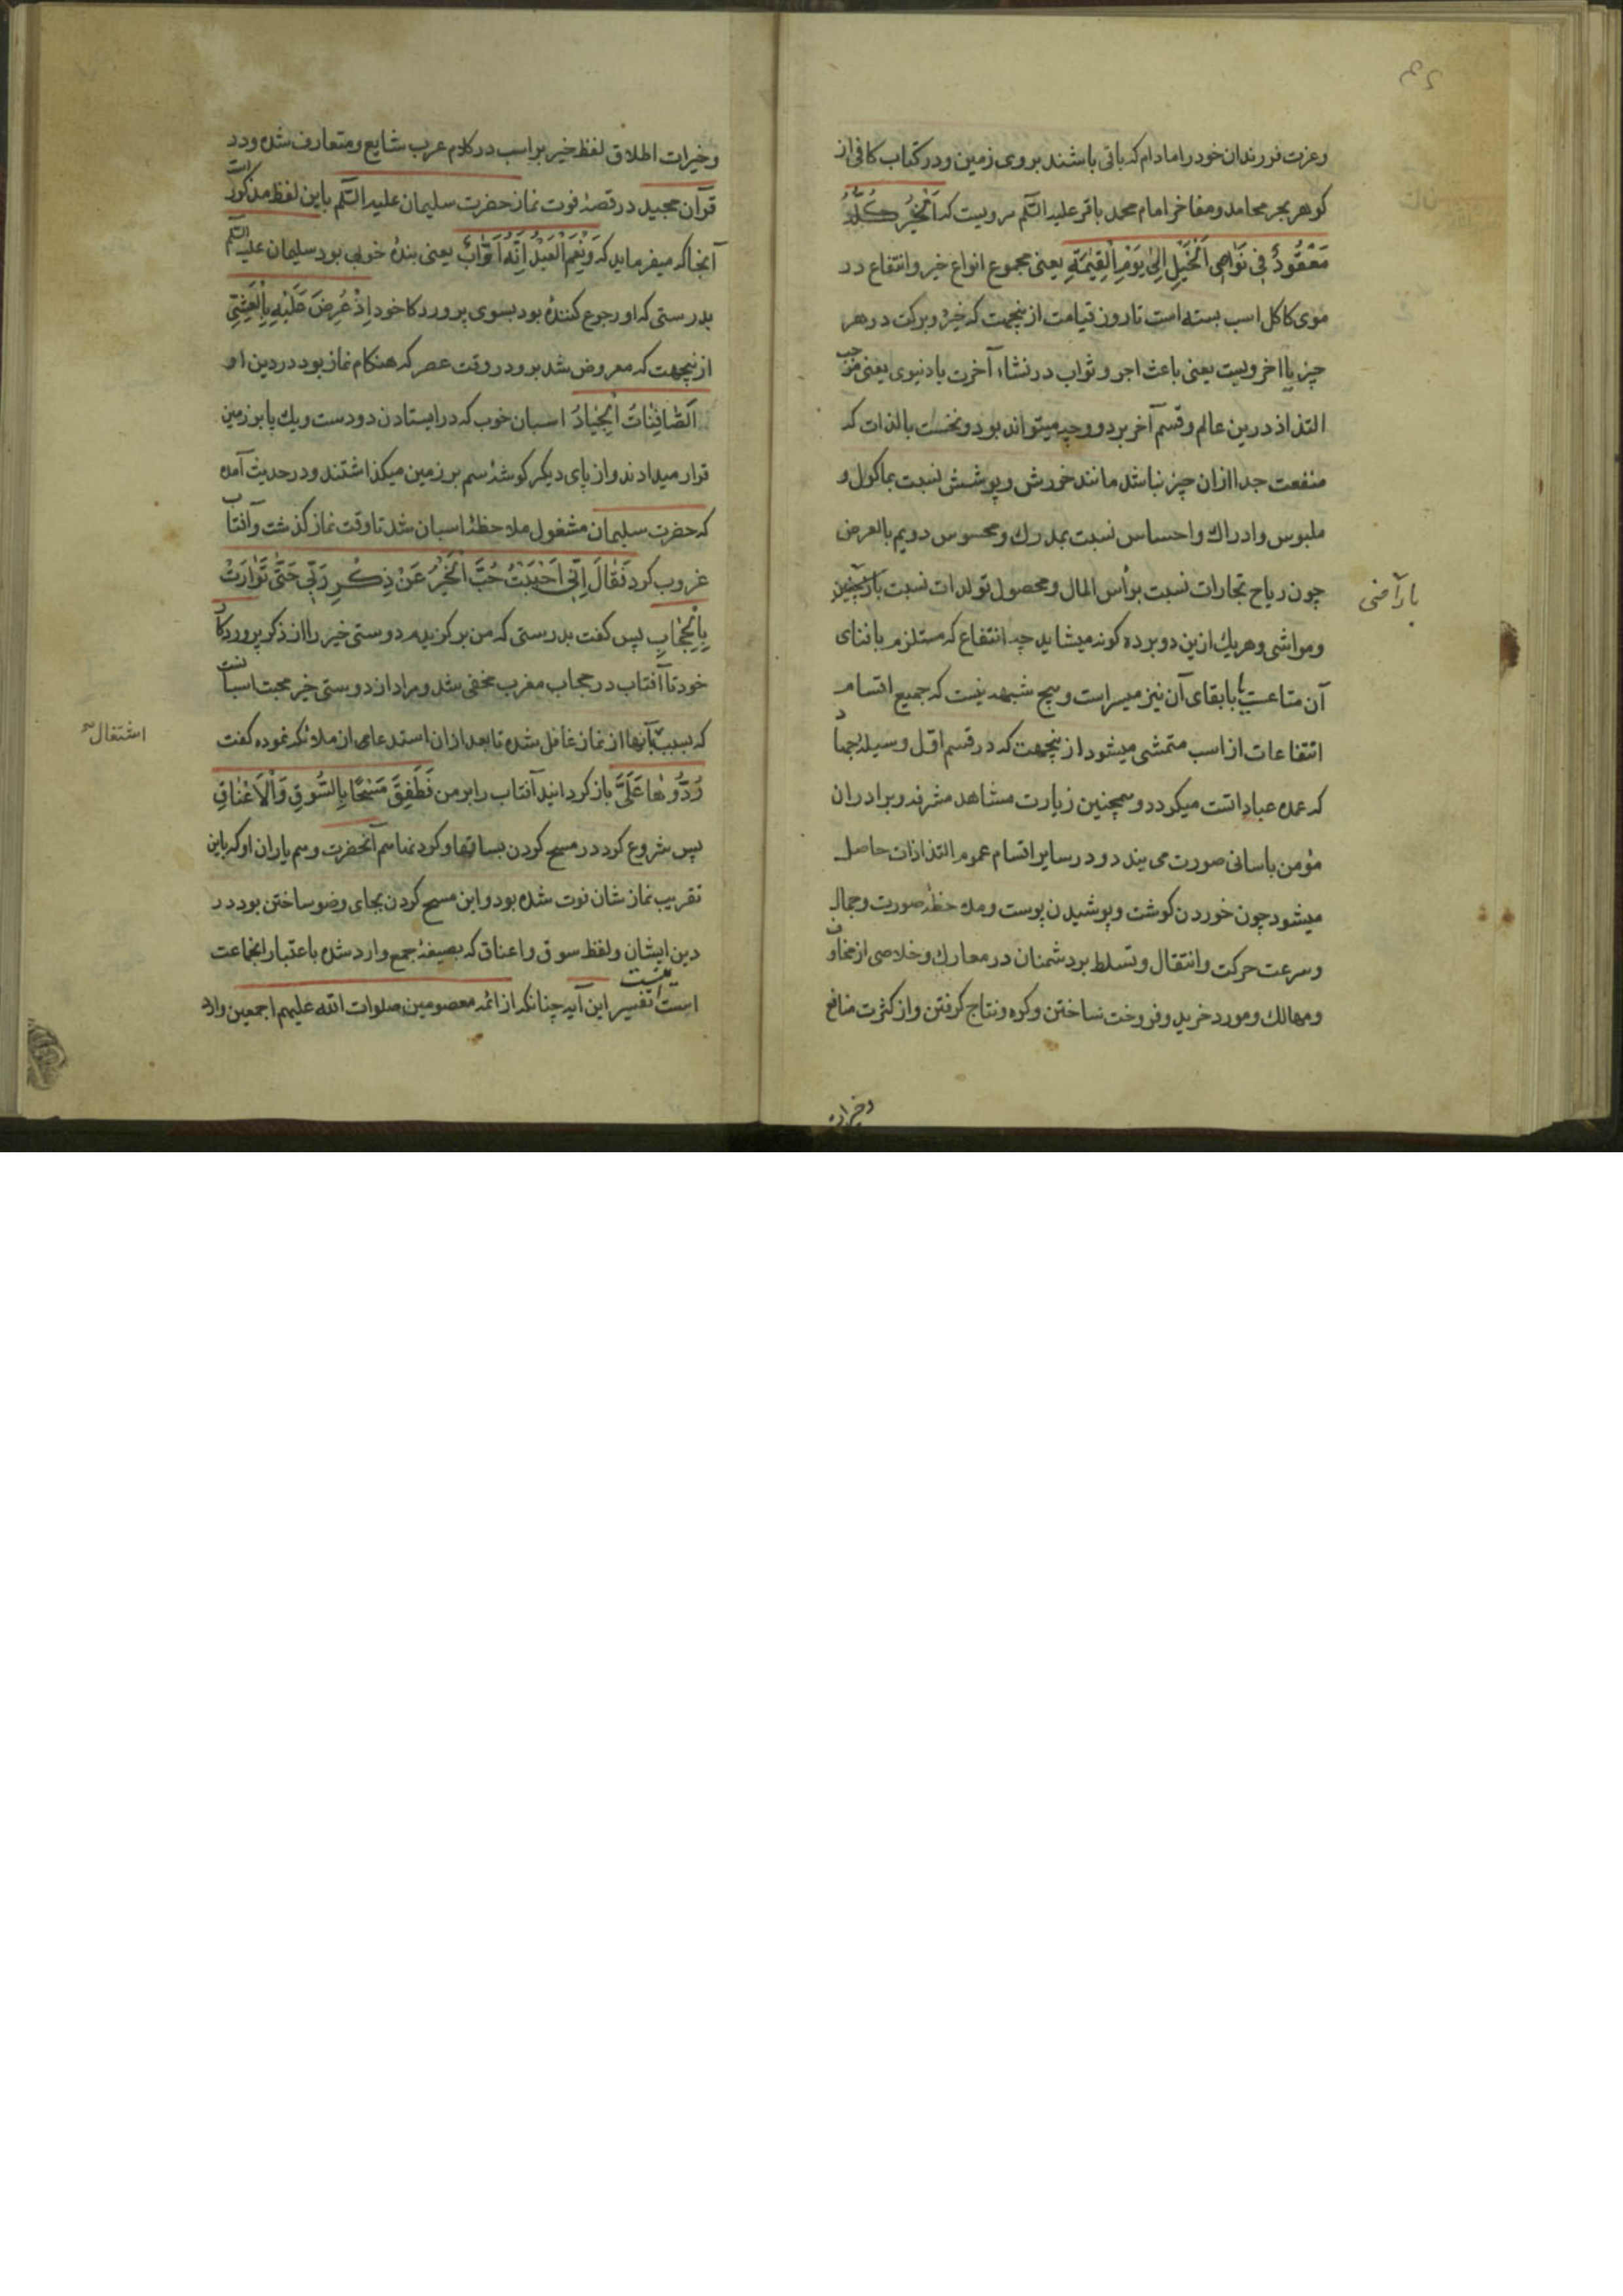 وعزت فرزندان خود را مادام که باقی باشند بر روی زمین و در کتاب کافی از
کوهر بحر محامد و مفاخر امام محمد باقر علیه السلم مرویست که اَلْخَیْرُ کُلُّهُ
مَعْقُودٌ فِی نَوٰاصِی اَلْخَیْلِ اِلیٰ یَوْمِ اَلْقِیٰمَةِ یعنی مجموع انواع خیر و انتفاع در
موی کاکل اسب بسته است تا روز قیامت از ینجهت که خیر و برکت در هر
چیز یا اخرویست یعنی باعث اجر و ثواب در نشاء آخرت یا دنیوی یعنی موجب
التذاذ درین عالم و قسم آخر بر دو وجه میتواند بود و نخست بالذات که
منفعت جدا ازان چیز نباشد مانند خورش و پوشش نسبت بماکول و
ملبوس و ادراك و احساس نسبت بمدرك و محسوس دویم بالعرض
چون ریاح تجارات نسبت برأس المال و محصول تولدات نسبت
باراضی
و مواشی و هریك ازین دو بر ده کونه میشاید چه انتفاع که مستلزم یا فنای
آن متاعست یا با بقای آن نیز میسر است و هیچ شبهه نیست که جمیع اقسام
انتفاعات از اسب متمشی میشود از ینجهت که در قسم اول وسیلهٔ جهاد
که عمده عباداتست میکردد و همچنین زیارت مشاهد مشرفه و برادران
مؤمن باسانی صورت می بندد و در سایر اقسام عموم التذاذات حاصل
میشود چون خوردن کوشت و پوشیدن پوست و مدد حظ صورت و جمال
و سرعت حرکت و انتقال و تسلط بر دشمنان در معارك و خلاصی از مخاوف
و مهالك و مورد خرید و فروخت ساختن و کره و نتاج کرفتن و از کثرت منافع
وخیرات
وخیرات اطلاق لفظ خیر بر اسب در کلام عرب شایع و متعارف شده و در
قرآن مجید در قصهٔ فوت نماز حضرت سلیمان علیه السلم باین لفظ مذکور است
آنجا که میفرماید که وَنِعْمَ اَلْعَبْدُ اِنَّهُ اَوّٰابٌ یعنی بندهٔ خوبی بود سلیمان علیه السلم
بدرستی که او رجوع کنندهٔ بود بسوی پروردکار خود اِذْ عُرِضَ عَلَیْهِ بِاْلعَشِیِّ
از ینجهت که معروض شد برو در وقت عصر که هنکام نماز بود در دین او
اَلصّٰافِنٰاتُ اَلْجِیٰادُ اسبان خوب که در ایستادن دو دست و یك پا بر زمین
قرار میدادند و از پای دیکر کوشهٔ سم بر زمین میکذاشتند و در حدیث آمده
که حضرت سلیمان مشغول ملاحظهٔ اسبان شد تا وقت نماز کذشت و آفتاب
غروب کرد فَقٰالَ اِنِّی اَحْبَبْتُ حُبَّ اَلْخَیْرِ عَنْ ذِکْرِ رَبِّی حَتّٰی تَوٰارَتْ
بِالْحِجٰابِ پس کفت بدرستی که من برکزیدم دوستی خیر را از ذکر پروردکار
خود تا آفتاب در حجاب مغرب مخفی شد و مراد از دوستی خیر محبت اسبانست
که بسبب اشتغال بآنها از نماز غافل شده تا بعد ازان استدعای از ملائکه نموده کفت
رُدُّوهٰا عَلَیَّ باز کردانید آفتاب را بر من فَطَفِقَ مَسْحًا بِالسُّوقِ وَاْلاَعْنٰاقِ
پس شروع کرد در مسح کردن بساقها و کردنها هم آنحضرت و هم یاران او که باین
تقریب نماز شان فوت شده بود و این مسح کردن بجای وضو ساختن بود در
دین ایشان و لفظ سوق و اعناق که بصیغهٔ جمع وارد شده باعتبار انجماعت
است اینست تفسیر این آیه چنانکه از ائمه معصومین صلوات الله علیهم اجمعین وارد